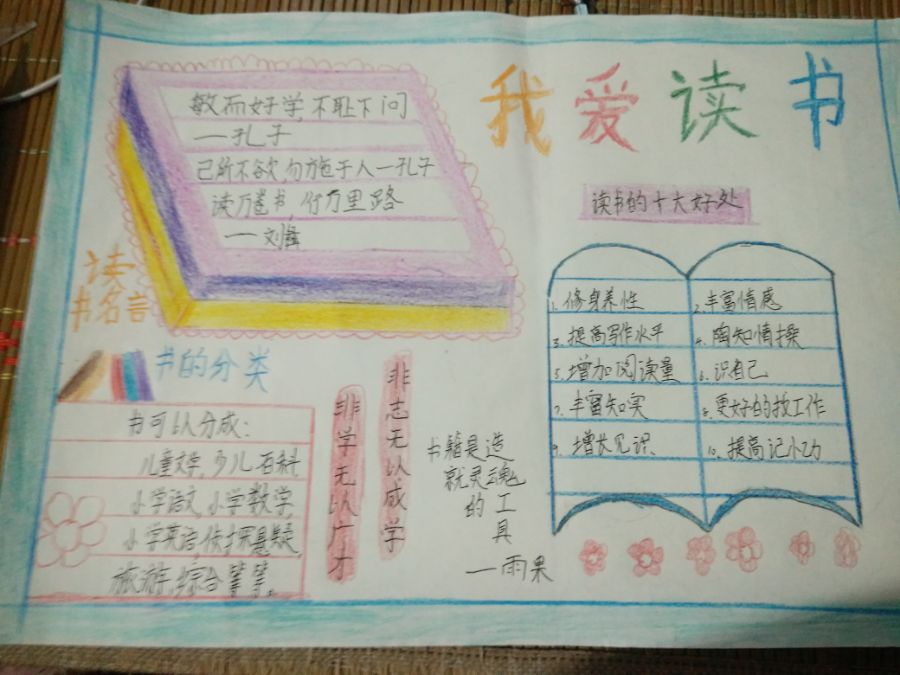 我爱读书
敏而好学,不耻下问
——孔子
己所不欲,勿施于人—孔子
读万卷书,行万里路
——刘彝
读
书名言
读书的十大好处
1.修身养性
2.丰富情感
3.提高写作水平
4.陶知情操
5.增加阅读量
6.识自己
7.丰富知实
8.更好的找工作
9.增长见识
10.提高记小功
书的分类
书可以分成:
儿童文学,少儿百科
小学语文,小学数学
小学英语,侦探悬疑
旅游,综合等等。
非学无以广才
非志无以成学
书籍是造
就灵魂
的工
具
——雨果